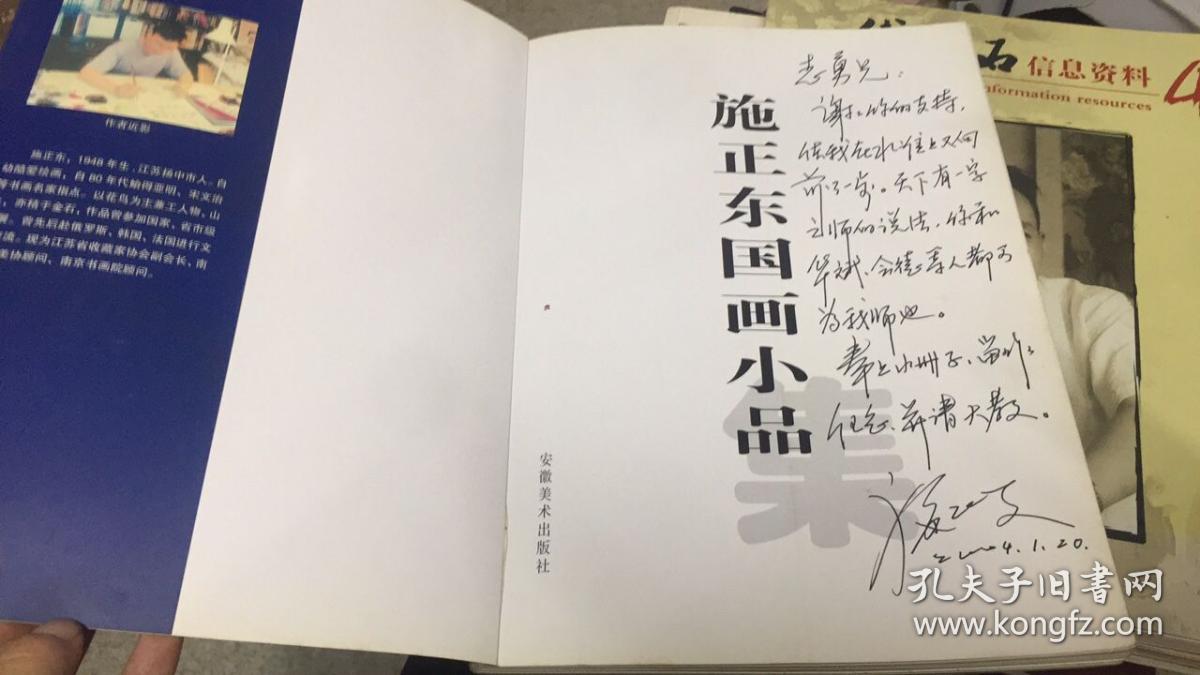 作者近影
施正东，1948年生，江苏扬中市人。自
幼酷爱绘画，自80年代始得亚明、宋文治
等书画名家指点。以花鸟为主兼工人物、山
亦精于金石，作品曾参加国家、省市级
展。曾先后赴俄罗斯、韩国、法国进行文
流。现为江苏省收藏家协会副会长、南
美协顾问、南京书画院顾问。
施正东国画小品
集
安徽美术出版社
志勇兄：
谢谢你的支持，
使我在水准上又向
前了一步。天下有一字
之师的说法，你和
华斌、会德等人都可
为我师也。
奉上小册子，留作
纪念，并请大教。
施正东
2004.1.20.
信息资料
information resources
孔夫子旧书网
www.kongfz.com